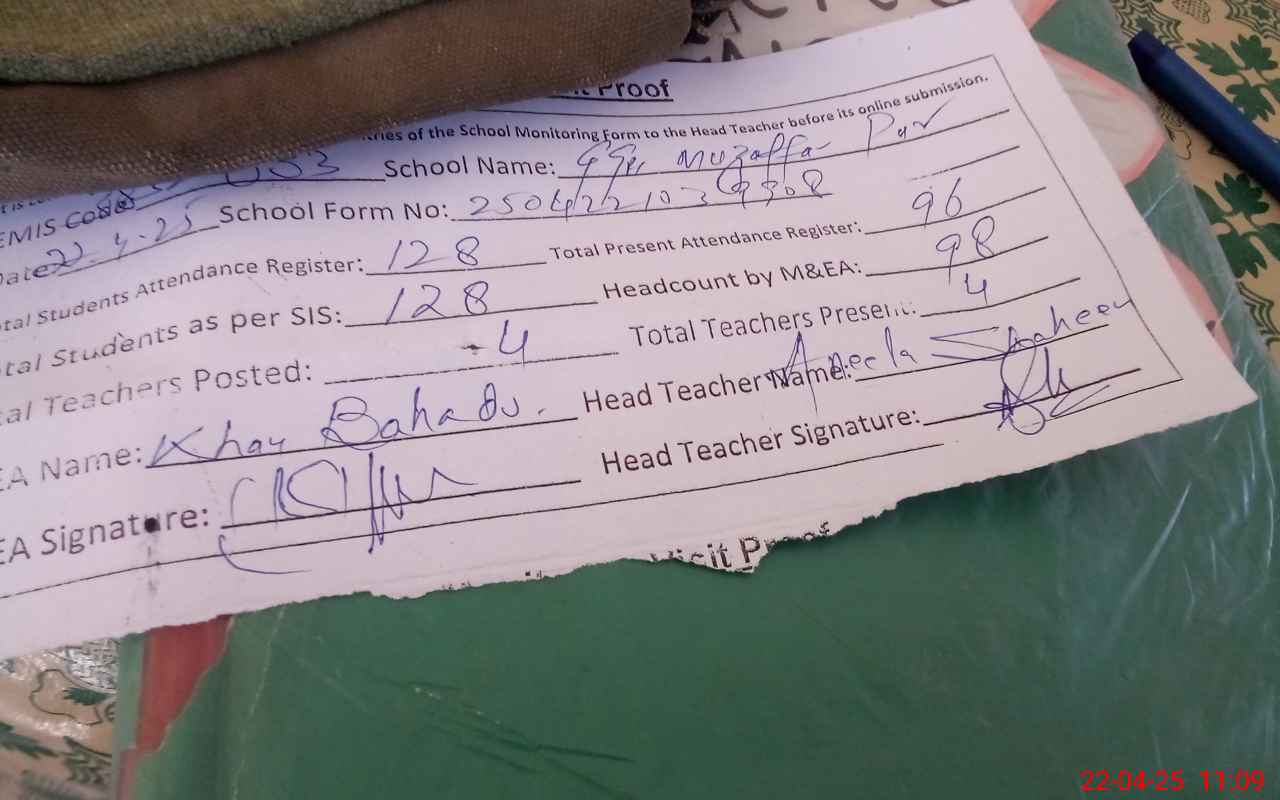 Proof
ries of the School Monitoring Form to the Head Teacher before its online submission.
EMIS Code 003 School Name: GGPS Muzaffar Pur
Date 22.4.25 School Form No: 250422103
tal Students Attendance Register: 128 Total Present Attendance Register: 96
tal Students as per SIS: 128 Headcount by M&EA: 98
al Teachers Posted: 4 Total Teachers Present: 4
EA Name: Khan Bahadu. Head Teacher Name: Aneela Shaheen
EA Signature: Head Teacher Signature:
Visit Proof
22-04-25 11:09